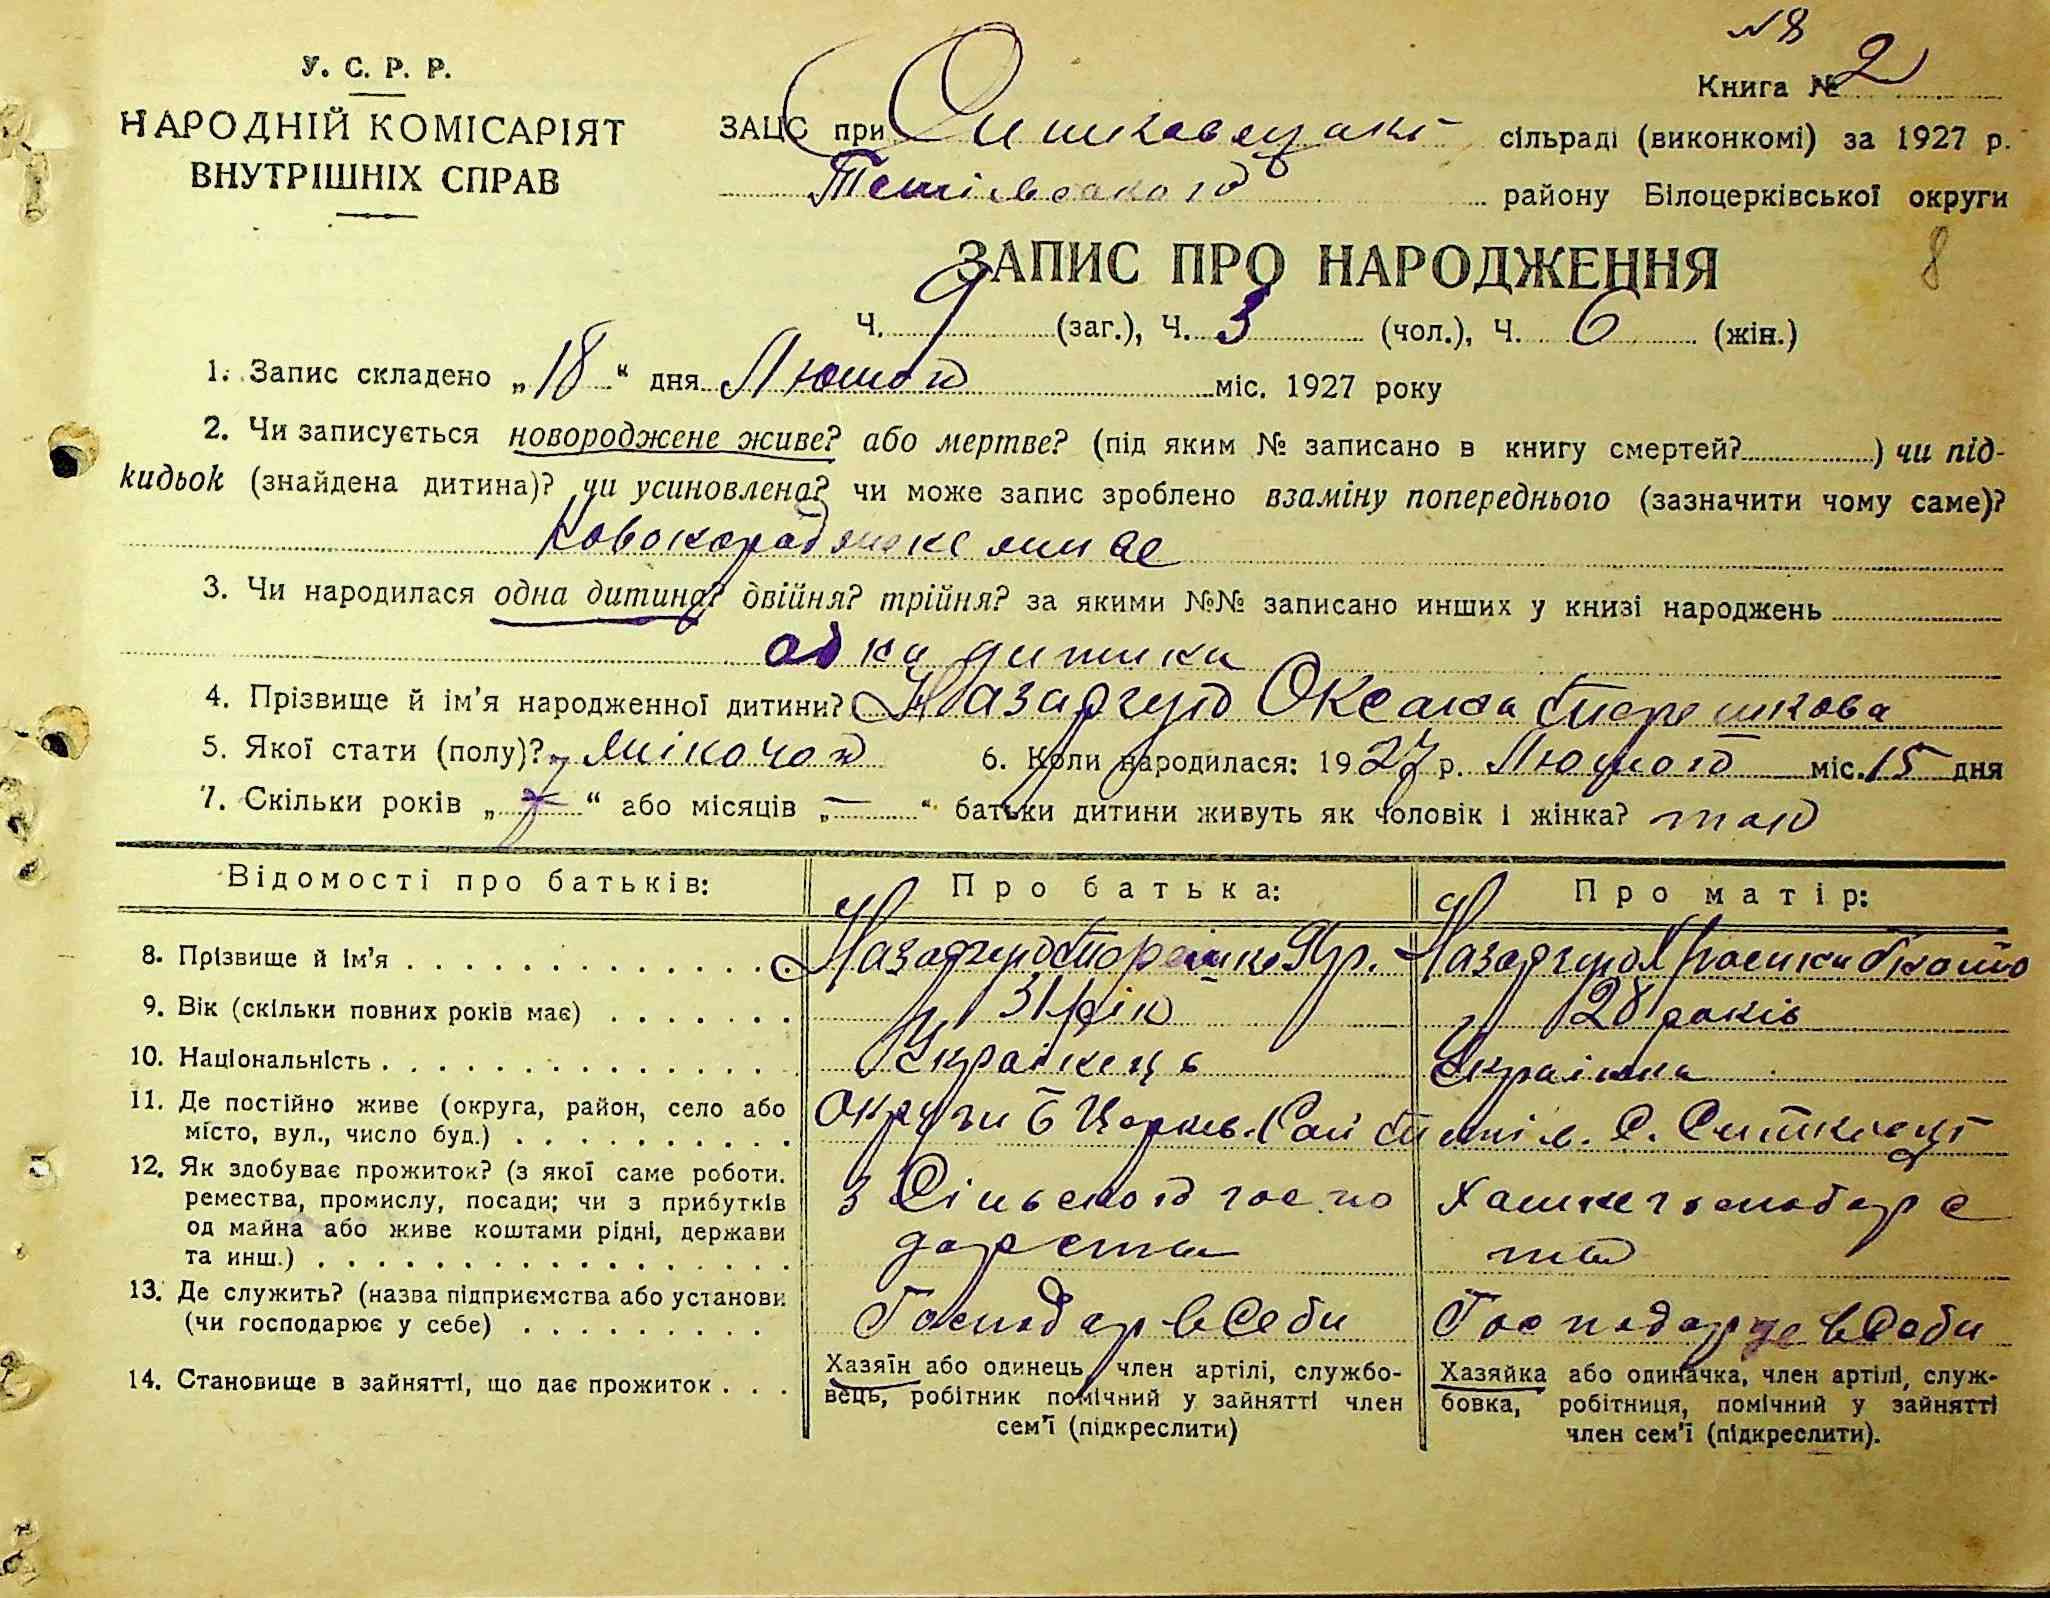 № 8
У. С. Р. Р.
Книга № 2
НАРОДНІЙ КОМІСАРІЯТ
ВНУТРІШНІХ СПРАВ
ЗАЦС при Ситковецькі сільраді (виконкомі) за 1927 р.
Тетіївського району Білоцерківської округи
ЗАПИС ПРО НАРОДЖЕННЯ
8
Ч. 9 (заг.), Ч. 3 (чол.), Ч. 6 (жін.)
1. Запис складено „18“ дня Лютого міс. 1927 року
2. Чи записується новороджене живе? або мертве? (під яким № записано в книгу смертей? ) чи під-
кидьок (знайдена дитина)? чи усиновлена? чи може запис зроблено взаміну попереднього (зазначити чому саме)?
3. Чи народилася одна дитина? двійня? трійня? за якими №№ записано инших у книзі народжень
одна дитина
4. Прізвище й ім'я народженної дитини? Оксана
5. Якої стати (полу)? жіночого 6. Коли народилася: 1927 р. Лютого міс. 15 дня
7. Скільки років „7“ або місяців „—“ батьки дитини живуть як чоловік і жінка?
Відомості про батьків: Про батька: Про матір:
8. Прізвище й ім'я
9. Вік (скільки повних років має) 31 рік 28 років
10. Національність Українець Українка
11. Де постійно живе (округа, район, село або
місто, вул., число буд.) Округи Б Церків. Рай Тетіїв. С. Ситківці
12. Як здобуває прожиток? (з якої саме роботи.
ремества, промислу, посади; чи з прибутків
од майна або живе коштами рідні, держави
та инш.) з Сільского госпо
дарства
13. Де служить? (назва підприємства або установи
(чи господарює у себе) Господар в Себи Господарує в Себи
14. Становище в зайнятті, що дає прожиток Хазяїн або одинець, член артілі, службо-
вець, робітник помічний у зайнятті член
сем'ї (підкреслити)
Хазяйка або одиначка, член артілі, служ-
бовка, робітниця, помічний у зайнятті
член сем'ї (підкреслити).